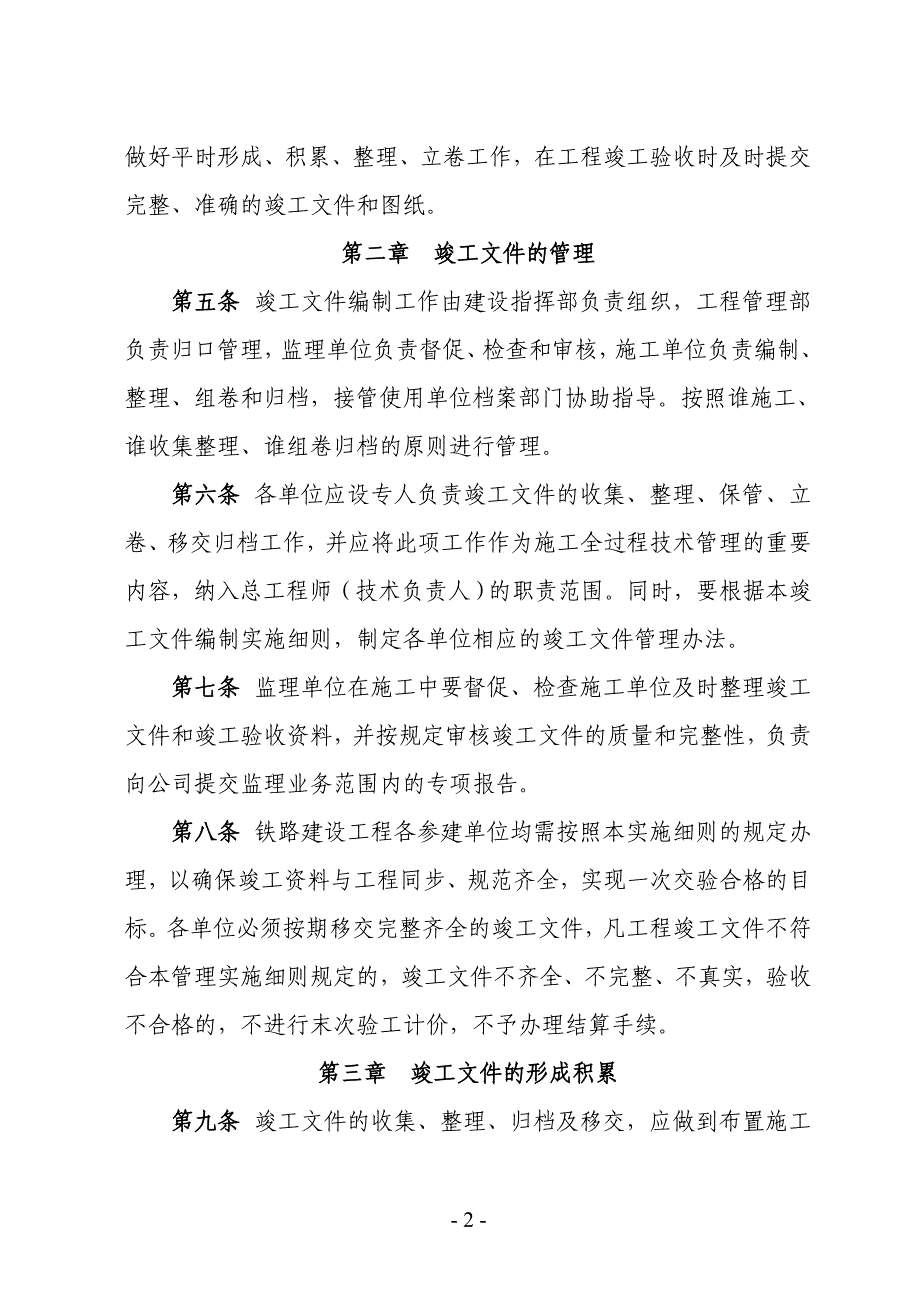 做好平时形成、积累、整理、立卷工作，在工程竣工验收时及时提交
完整、准确的竣工文件和图纸。
第二章　竣工文件的管理
第五条 竣工文件编制工作由建设指挥部负责组织，工程管理部
负责归口管理，监理单位负责督促、检查和审核，施工单位负责编制、
整理、组卷和归档，接管使用单位档案部门协助指导。按照谁施工、
谁收集整理、谁组卷归档的原则进行管理。
第六条 各单位应设专人负责竣工文件的收集、整理、保管、立
卷、移交归档工作，并应将此项工作作为施工全过程技术管理的重要
内容，纳入总工程师（技术负责人）的职责范围。同时，要根据本竣
工文件编制实施细则，制定各单位相应的竣工文件管理办法。
第七条 监理单位在施工中要督促、检查施工单位及时整理竣工
文件和竣工验收资料，并按规定审核竣工文件的质量和完整性，负责
向公司提交监理业务范围内的专项报告。
第八条 铁路建设工程各参建单位均需按照本实施细则的规定办
理，以确保竣工资料与工程同步、规范齐全，实现一次交验合格的目
标。各单位必须按期移交完整齐全的竣工文件，凡工程竣工文件不符
合本管理实施细则规定的，竣工文件不齐全、不完整、不真实，验收
不合格的，不进行末次验工计价，不予办理结算手续。
第三章　竣工文件的形成积累
第九条 竣工文件的收集、整理、归档及移交，应做到布置施工
- 2 -